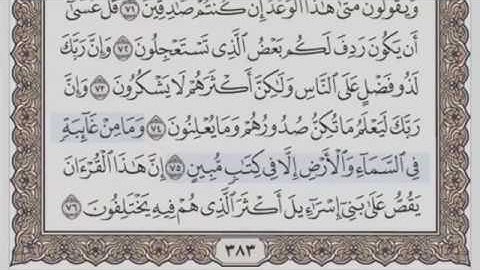 وَيَقُولُونَ مَتَىٰ هَٰذَا ٱلْوَعْدُ إِن كُنتُمْ صَٰدِقِينَ ٧١ قُلْ عَسَىٰٓ
أَن يَكُونَ رَدِفَ لَكُم بَعْضُ ٱلَّذِى تَسْتَعْجِلُونَ ٧٢ وَإِنَّ رَبَّكَ
لَذُو فَضْلٍ عَلَى ٱلنَّاسِ وَلَٰكِنَّ أَكْثَرَهُمْ لَا يَشْكُرُونَ ٧٣ وَإِنَّ
رَبَّكَ لَيَعْلَمُ مَا تُكِنُّ صُدُورُهُمْ وَمَا يُعْلِنُونَ ٧٤ وَمَا مِنْ غَآئِبَةٍ
فِى ٱلسَّمَآءِ وَٱلْأَرْضِ إِلَّا فِى كِتَٰبٍ مُّبِينٍ ٧٥ إِنَّ هَٰذَا ٱلْقُرْءَانَ
يَقُصُّ عَلَىٰ بَنِىٓ إِسْرَٰٓءِيلَ أَكْثَرَ ٱلَّذِى هُمْ فِيهِ يَخْتَلِفُونَ ٧٦
٣٨٣